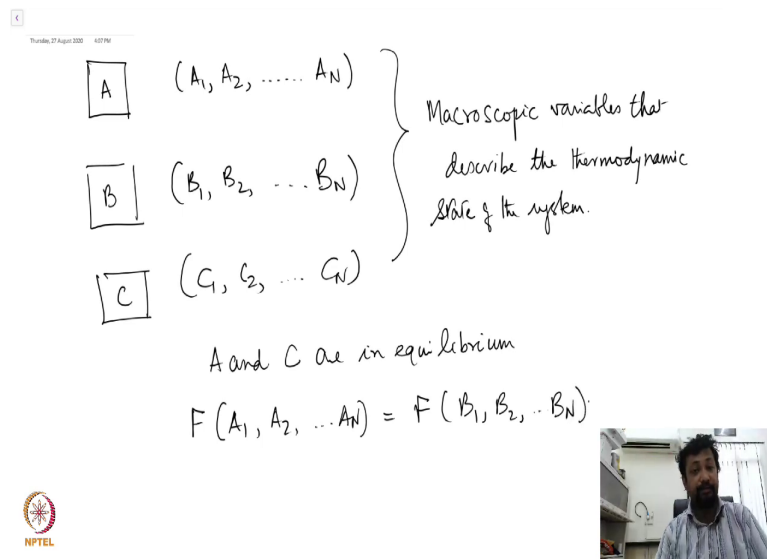 Thursday, 27 August 2020 4:07 PM
A (A1, A2, ...... AN)
B (B1, B2, ... BN)
C (C1, C2, ... CN)
Macroscopic variables that
describe the thermodynamic
state of the system.
A and C are in equilibrium
F (A1, A2, ... AN) = F (B1, B2, .. BN)
NPTEL